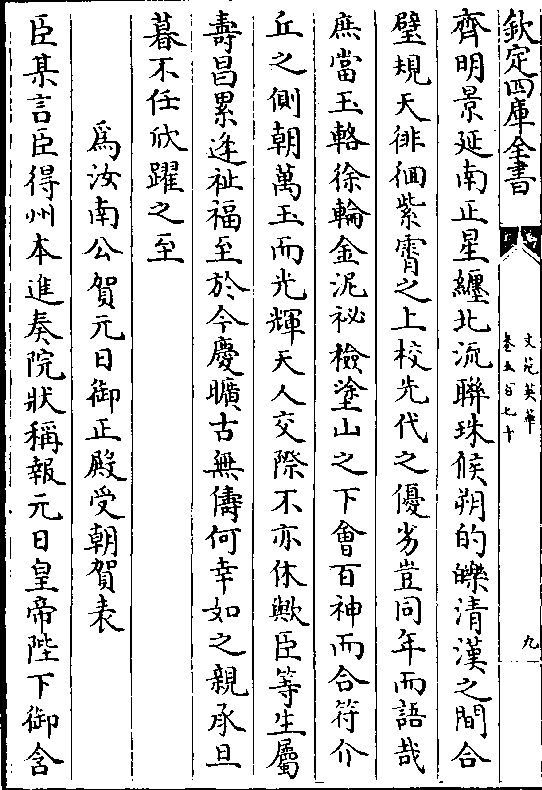 欽定四庫全書
文苑英華
卷五百七十
九
齊明景延南正星纏北流聯珠候朔的皪清漢之間合
璧規天徘徊紫霄之上校先代之優劣豈同年而語哉
庶當玉輅徐輪金泥祕檢塗山之下會百神而合符介
丘之側朝萬玉而光輝天人交際不亦休歟臣等生屬
壽昌累逢祉福至於今慶曠古無儔何幸如之親承旦
暮不任欣躍之至
爲汝南公賀元日御正殿受朝賀表
臣某言臣得州本進奏院狀稱報元日皇帝陛下御含